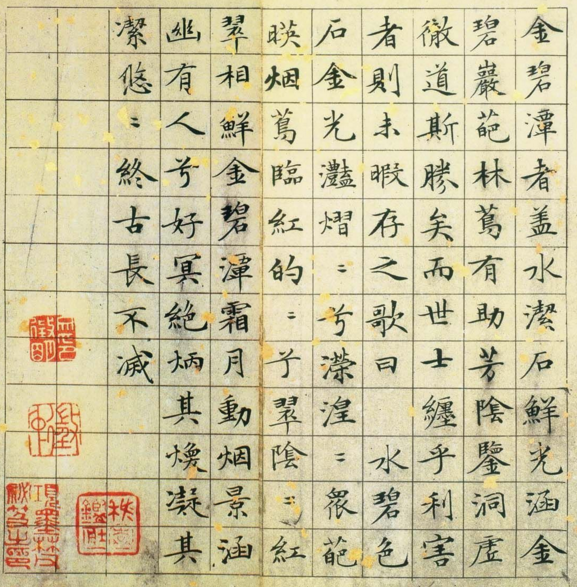 金碧潭者盖水潔石鮮光涵金
碧巖葩林蔦有助芳陰鑒洞虛
徹道斯勝矣而世士纏乎利害
者則未暇存之歌曰 水碧色
石金光灩熠々兮濴湟々衆葩
暎烟蔦臨紅的々兮翠陰々紅
翠相鮮金碧潭霜月動烟景涵
幽有人兮好冥絶炳其煥凝其
潔悠々終古長不滅
項墨林父祕笈之印